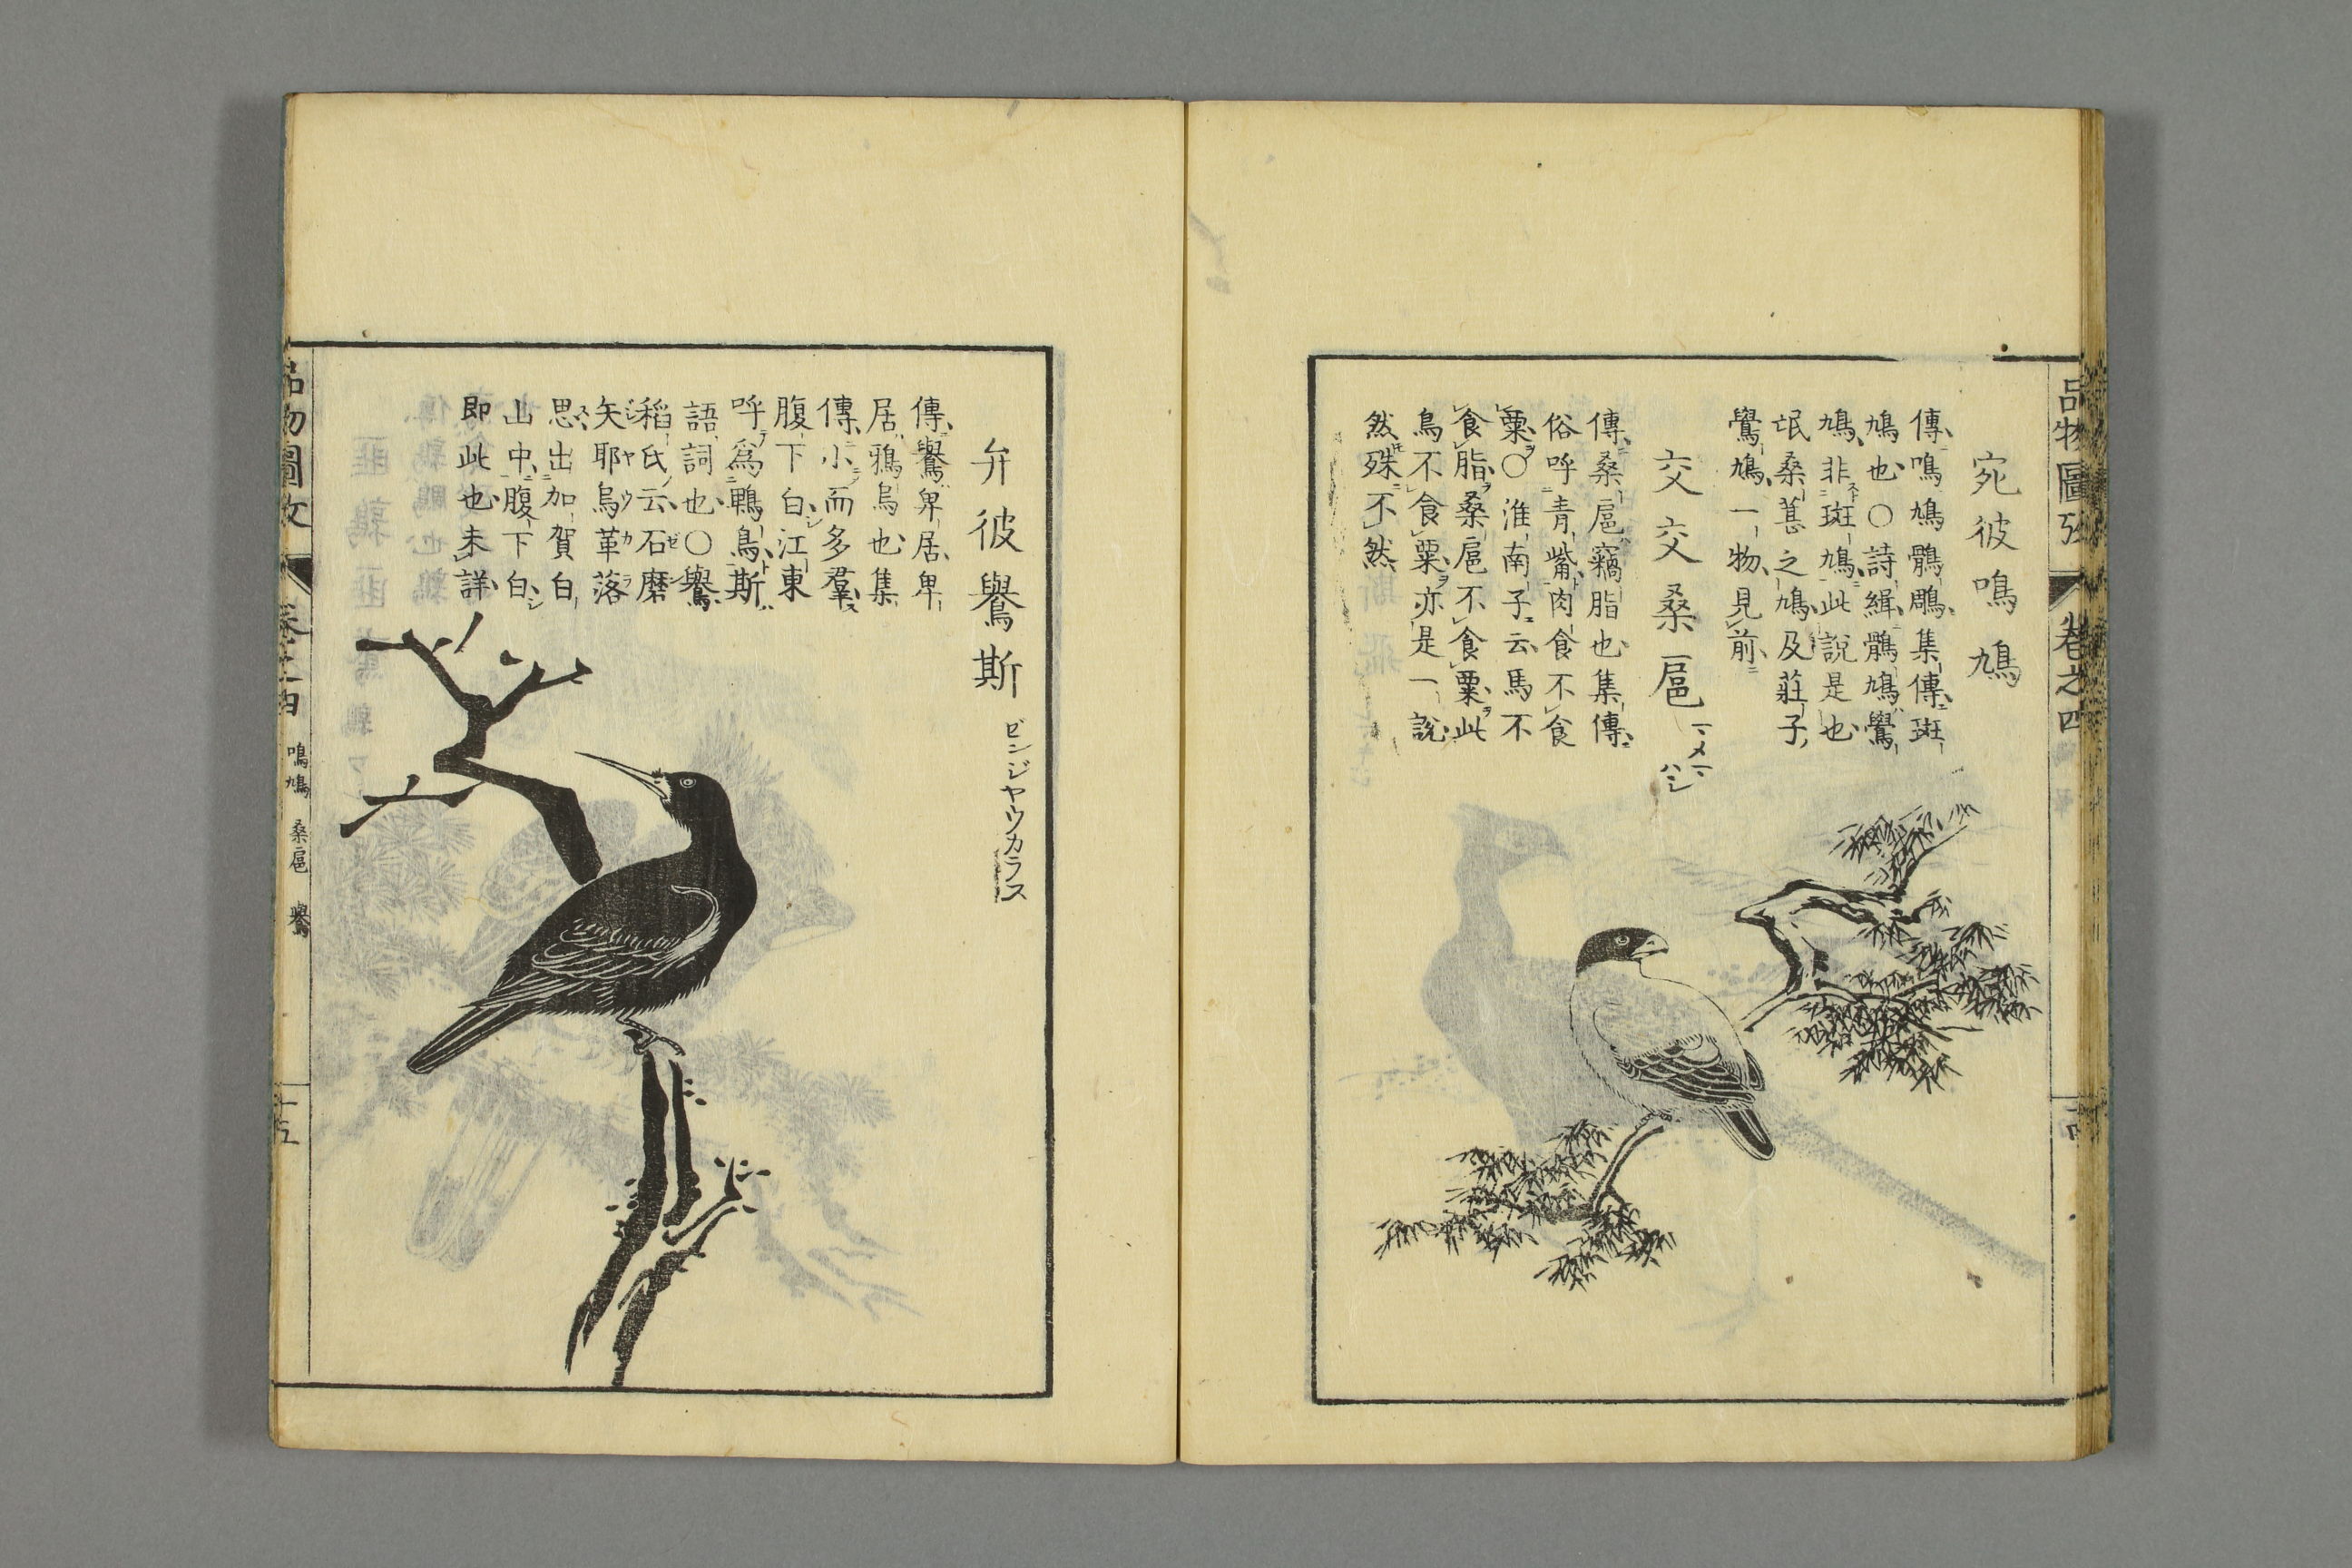 品物圖攷 巻之四
宛彼鳴鳩
傳鳴鳩鶻鵰集傳斑
鳩也○詩緝鶻鳩鷽
鳩非斑鳩此說是也
氓桑葚之鳩及莊子
鷽鳩一物見前
交交桑扈
傳桑扈竊脂也集傳
俗呼青觜肉食不食
粟○淮南子云馬不
食脂桑扈不食粟此
鳥不食粟亦是一說
然殊不然
弁彼鸒斯 ビンジヤウカラス
傳鸒卑居卑
居鴉烏也集
傳小而多羣
腹下白江東
呼爲鵯烏斯
語詞也○鸒
稻氏云石磨
矢耶烏革落
思出加賀白
山中腹下白
即此也未詳
品物圖攷 巻之四 鳴鳩 桑扈 鸒
十五